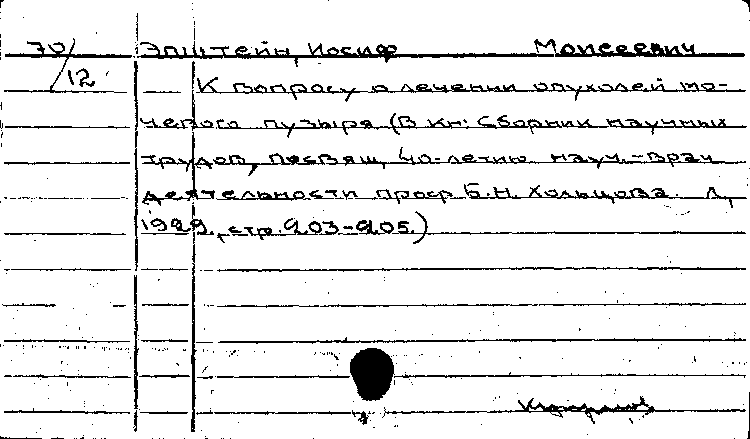 70/12 Эпштейн, Иосиф Моисеевич
К вопросу о лечении опухолей мо-
чевого пузыря (В кн: Сборник научных
трудов, посвящ. 40-летию науч.-врач.
деятельности проф. Б.Н. Хольцова. Л,
1929, стр. 203-205.)